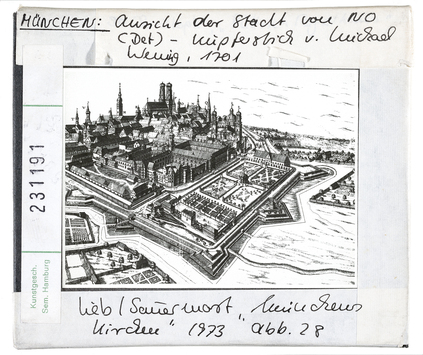 MÜNCHEN: Ansicht der Stadt von NO
(Det) - Kupferstich v. Michael
Wening, 1701
231191
Kunstgesch.
Sem. Hamburg
Lieb / Sauermost "Münchens
Kirchen" 1973 Abb. 28